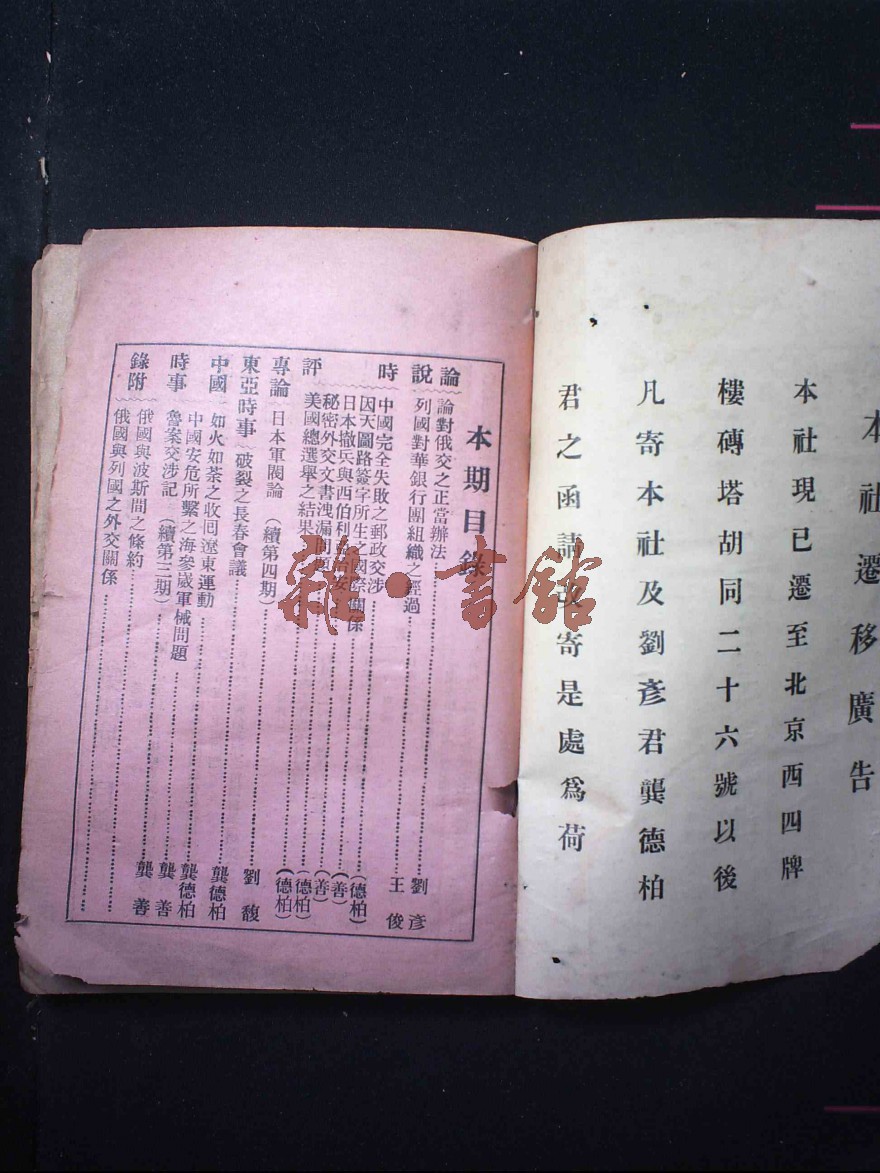 本社遷移廣告
本社現已遷至北京西四牌
樓磚塔胡同二十六號以後
凡寄本社及劉彥君龔德柏
君之函請改寄是處爲荷
本期目錄
論說
論對俄交之正當辦法 劉彥
列國對華銀行團組織之經過 王俊
時評
中國完全失敗之郵政交涉 (德柏)
因天圖路簽字所生之國際關係 (善)
日本撤兵與西伯利亞治安 (善)
秘密外交文書洩漏問題 (德柏)
美國總選舉之結果 (德柏)
專論 日本軍閥論 (續第四期) 劉馥
東亞時事 破裂之長春會議 龔德柏
中國時事
如火如荼之收回遼東運動 龔德柏
中國安危所繫之海參崴軍械問題 龔善
魯案交涉記 (續第三期) 龔善
附錄
俄國與波斯間之條約
俄國與列國之外交關係
雜·書館